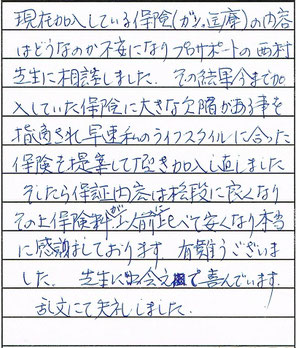 現在加入している保険(ガン.医療)の内容
はどうなのか不安になりプロサポートの西村
先生に相談しました。その結果今まで加
入していた保険に大きな欠陥がある事を
指摘され早速私のライフスタイルに合った
保険を提案して頂き加入し直しました
そしたら保証内容は格段に良くなり
その上保険料が以前に比べて安くなり本当
に感謝しております。有難うございま
した。先生に出会えて喜んでいます。
乱文にて失礼しました.